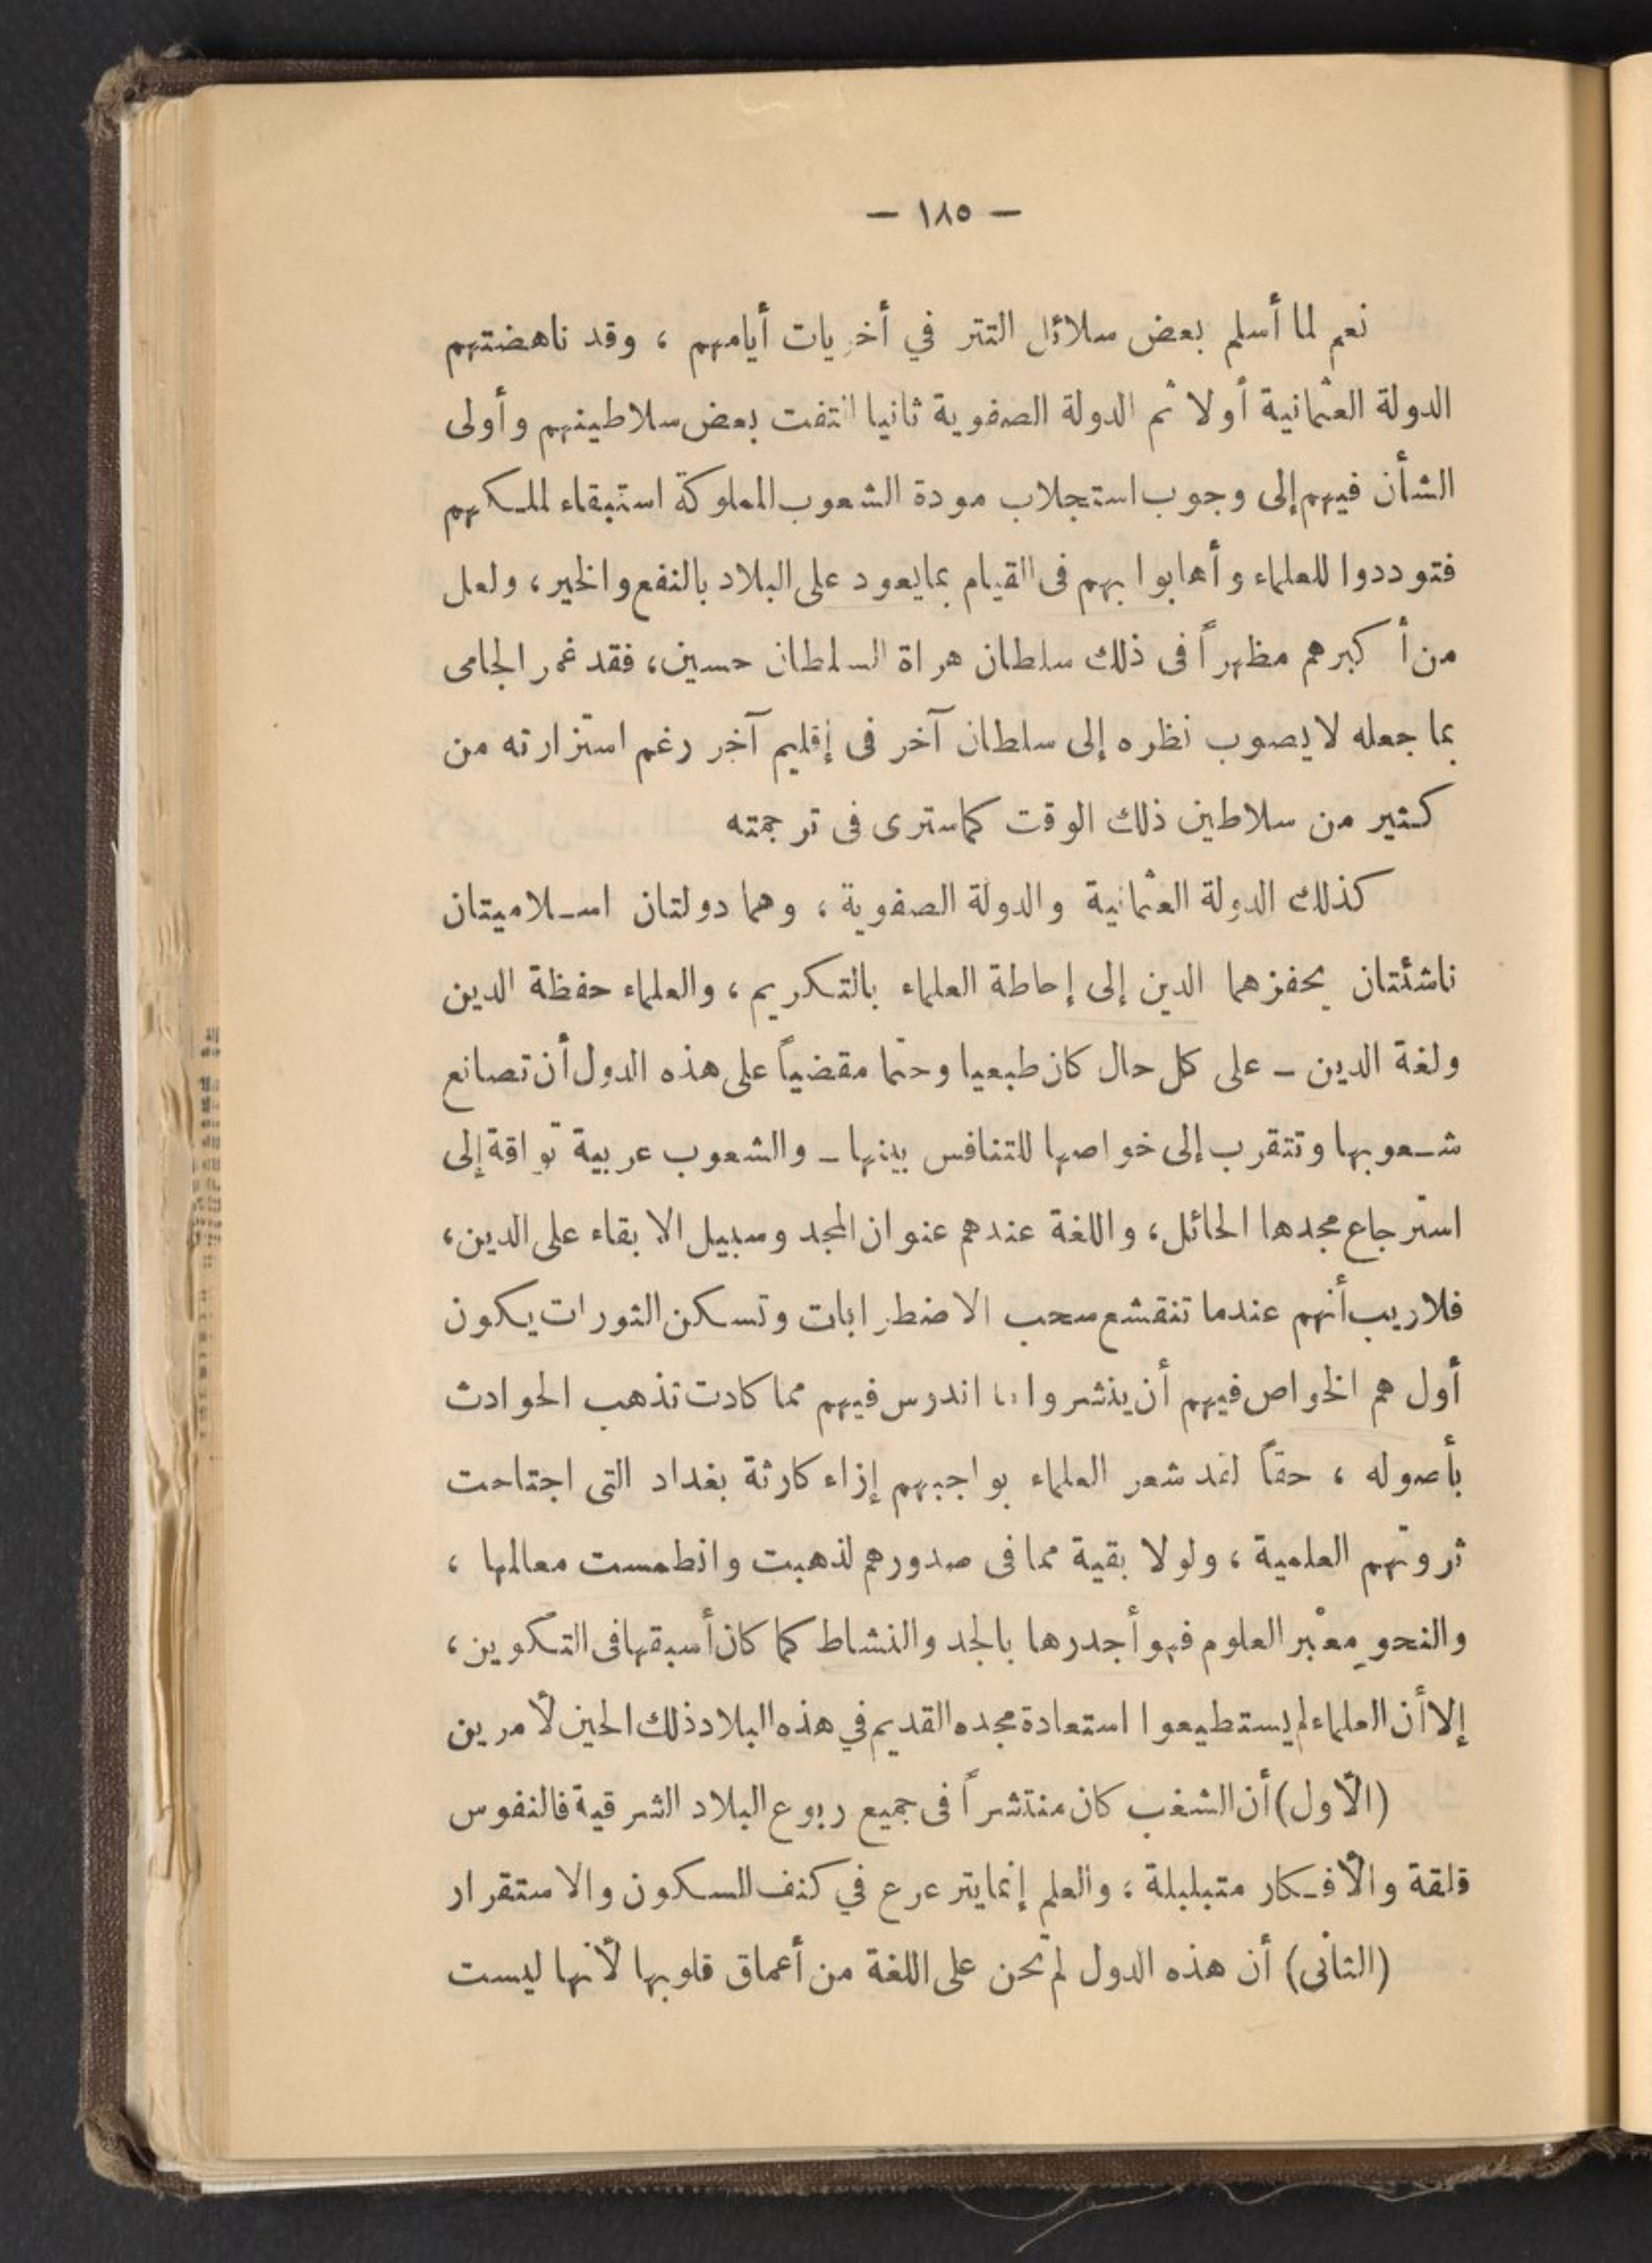 — ١٨٥ —
نعم لما أسلم بعض سلائل التتر في أخريات أيامهم ، وقد ناهضتهم
الدولة العثمانية أولا ثم الدولة الصفوية ثانيا التفت بعض سلاطينهم وأولى
الشأن فيهم إلى وجوب استجلاب مودة الشعوب المملوكة استبقاء لملكهم
فتوددوا للعلماء وأهابوا بهم فى القيام بما يعود على البلاد بالنفع والخير ، ولعل
من أكبرهم مظهراً فى ذلك سلطان هراة السلطان حسين ، فقد غمر الجامى
بما جعله لا يصوب نظره إلى سلطان آخر فى إقليم آخر رغم استزارته من
كثير من سلاطين ذلك الوقت كما سترى فى ترجمته
كذلك الدولة العثمانية والدولة الصفوية ، وهما دولتان اسلاميتان
ناشئتان يحفزهما الدين إلى إحاطة العلماء بالتكريم ، والعلماء حفظة الدين
ولغة الدين – على كل حال كان طبعيا وحتما مقضياً على هذه الدول أن تصانع
شعوبها وتتقرب إلى خواصها للتنافس بينها – والشعوب عربية تواقة إلى
استرجاع مجدها الحائل ، واللغة عندهم عنوان المجد وسبيل الابقاء على الدين ،
فلا ريب أنهم عندما تنقشع سحب الاضطرابات وتسكن الثورات يكون
أول هم الخواص فيهم أن ينشروا ما اندرس فيهم مما كادت تذهب الحوادث
بأصوله ، حقاً لقد شعر العلماء بواجبهم إزاء كارثة بغداد التى اجتاحت
ثروتهم العلمية ، ولولا بقية مما فى صدورهم لذهبت وانطمست معالمها ،
والنحو معْبر العلوم فهو أجدرها بالجد والنشاط كما كان أسبقها فى التكوين ،
إلا أن العلماء لم يستطيعوا استعادة مجده القديم في هذه البلاد ذلك الحين لأمرين
(الأول) أن الشغب كان منتشراً فى جميع ربوع البلاد الشرقية فالنفوس
قلقة والأفكار متبلبلة ، والعلم إنما يترعرع في كنف السكون والاستقرار
(الثانى) أن هذه الدول لم تحن على اللغة من أعماق قلوبها لأنها ليست